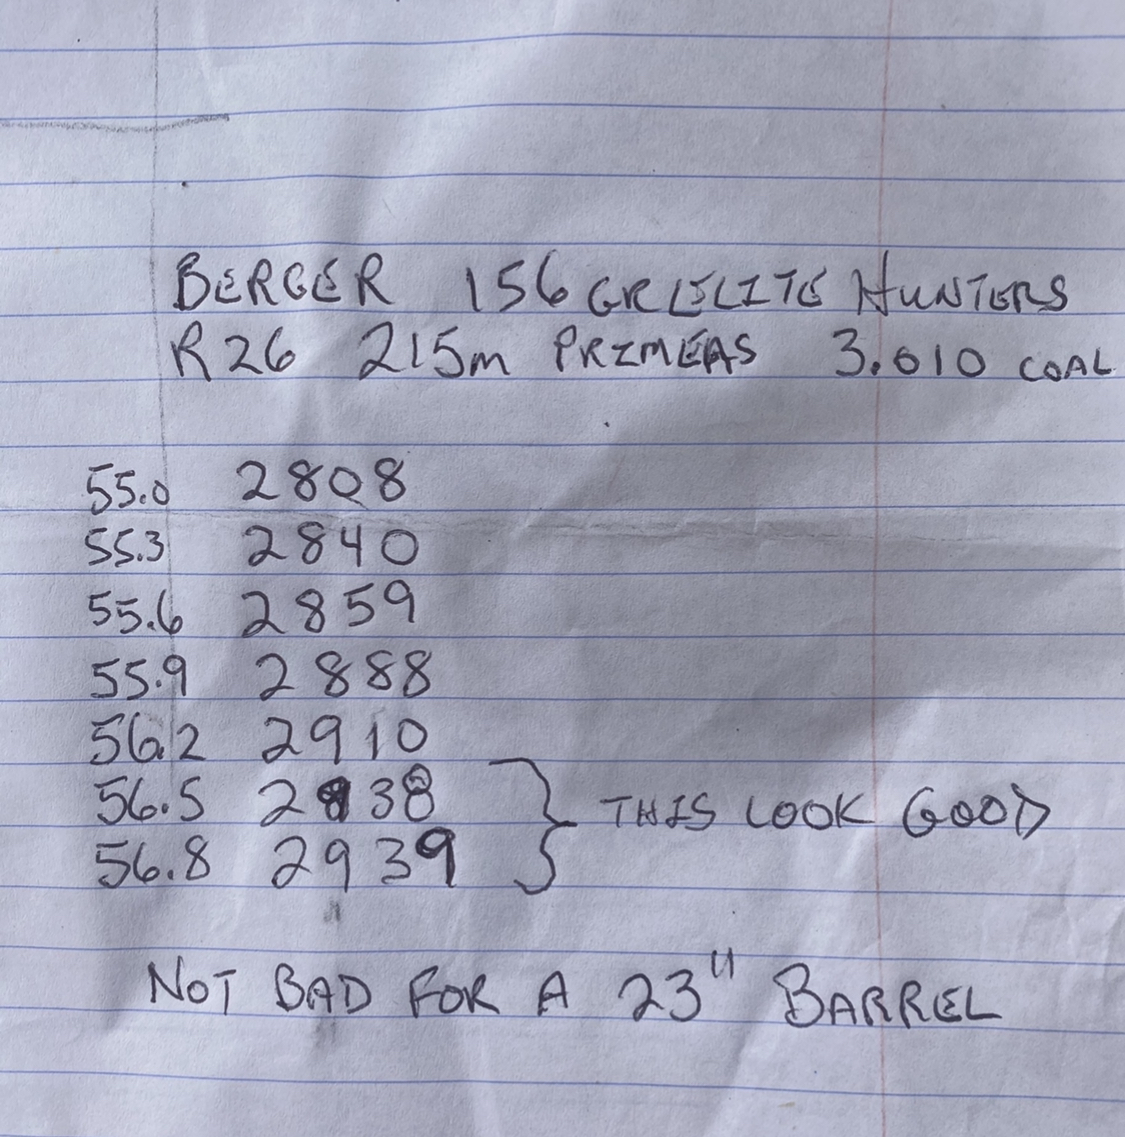 BERGER 156 GR ELITE HUNTERS
R26 215m PRIMERS 3.010 COAL
55.0 2808
55.3 2840
55.6 2859
55.9 2888
56.2 2910
56.5 2938
56.8 2939
THIS LOOK GOOD
NOT BAD FOR A 23" BARREL